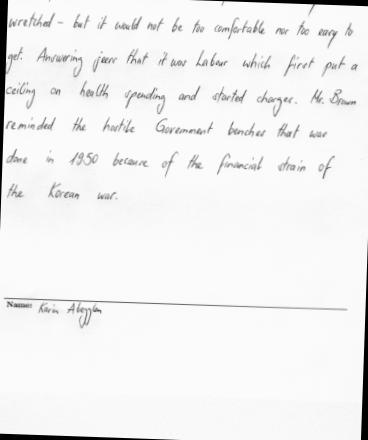 wretched - but it would not be too comfortable nor too easy to
get. Answering jeers that it was Labour which first put a
ceiling on health spending and started charges. Mr. Brown
reminded the hostile Government benches that was
done in 1950 because of the financial strain of
the Korean war.
Name: Karin Abegglen